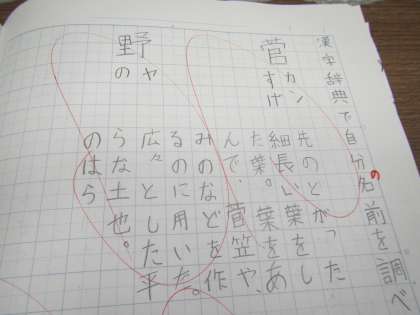 漢字辞典で自分の名前を調べ
菅
カン
すげ
先のとがった
細長い葉をし
た葉。葉をあ
んで、菅笠や、
みのなどを作
るのに用いた。
野
ヤ
の
広々とした平
らな地。
のはら